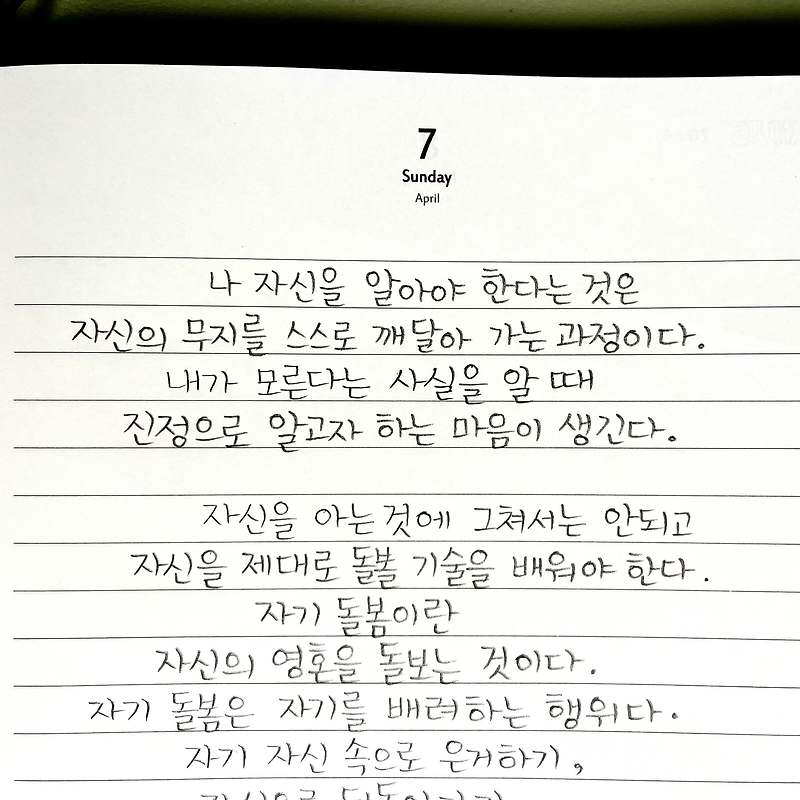 7
Sunday
April
나 자신을 알아야 한다는 것은
자신의 무지를 스스로 깨달아 가는 과정이다.
내가 모른다는 사실을 알 때
진정으로 알고자 하는 마음이 생긴다.
자신을 아는것에 그쳐서는 안되고
자신을 제대로 돌볼 기술을 배워야 한다.
자기 돌봄이란
자신의 영혼을 돌보는 것이다.
자기 돌봄은 자기를 배려하는 행위다.
자기 자신 속으로 은거하기,